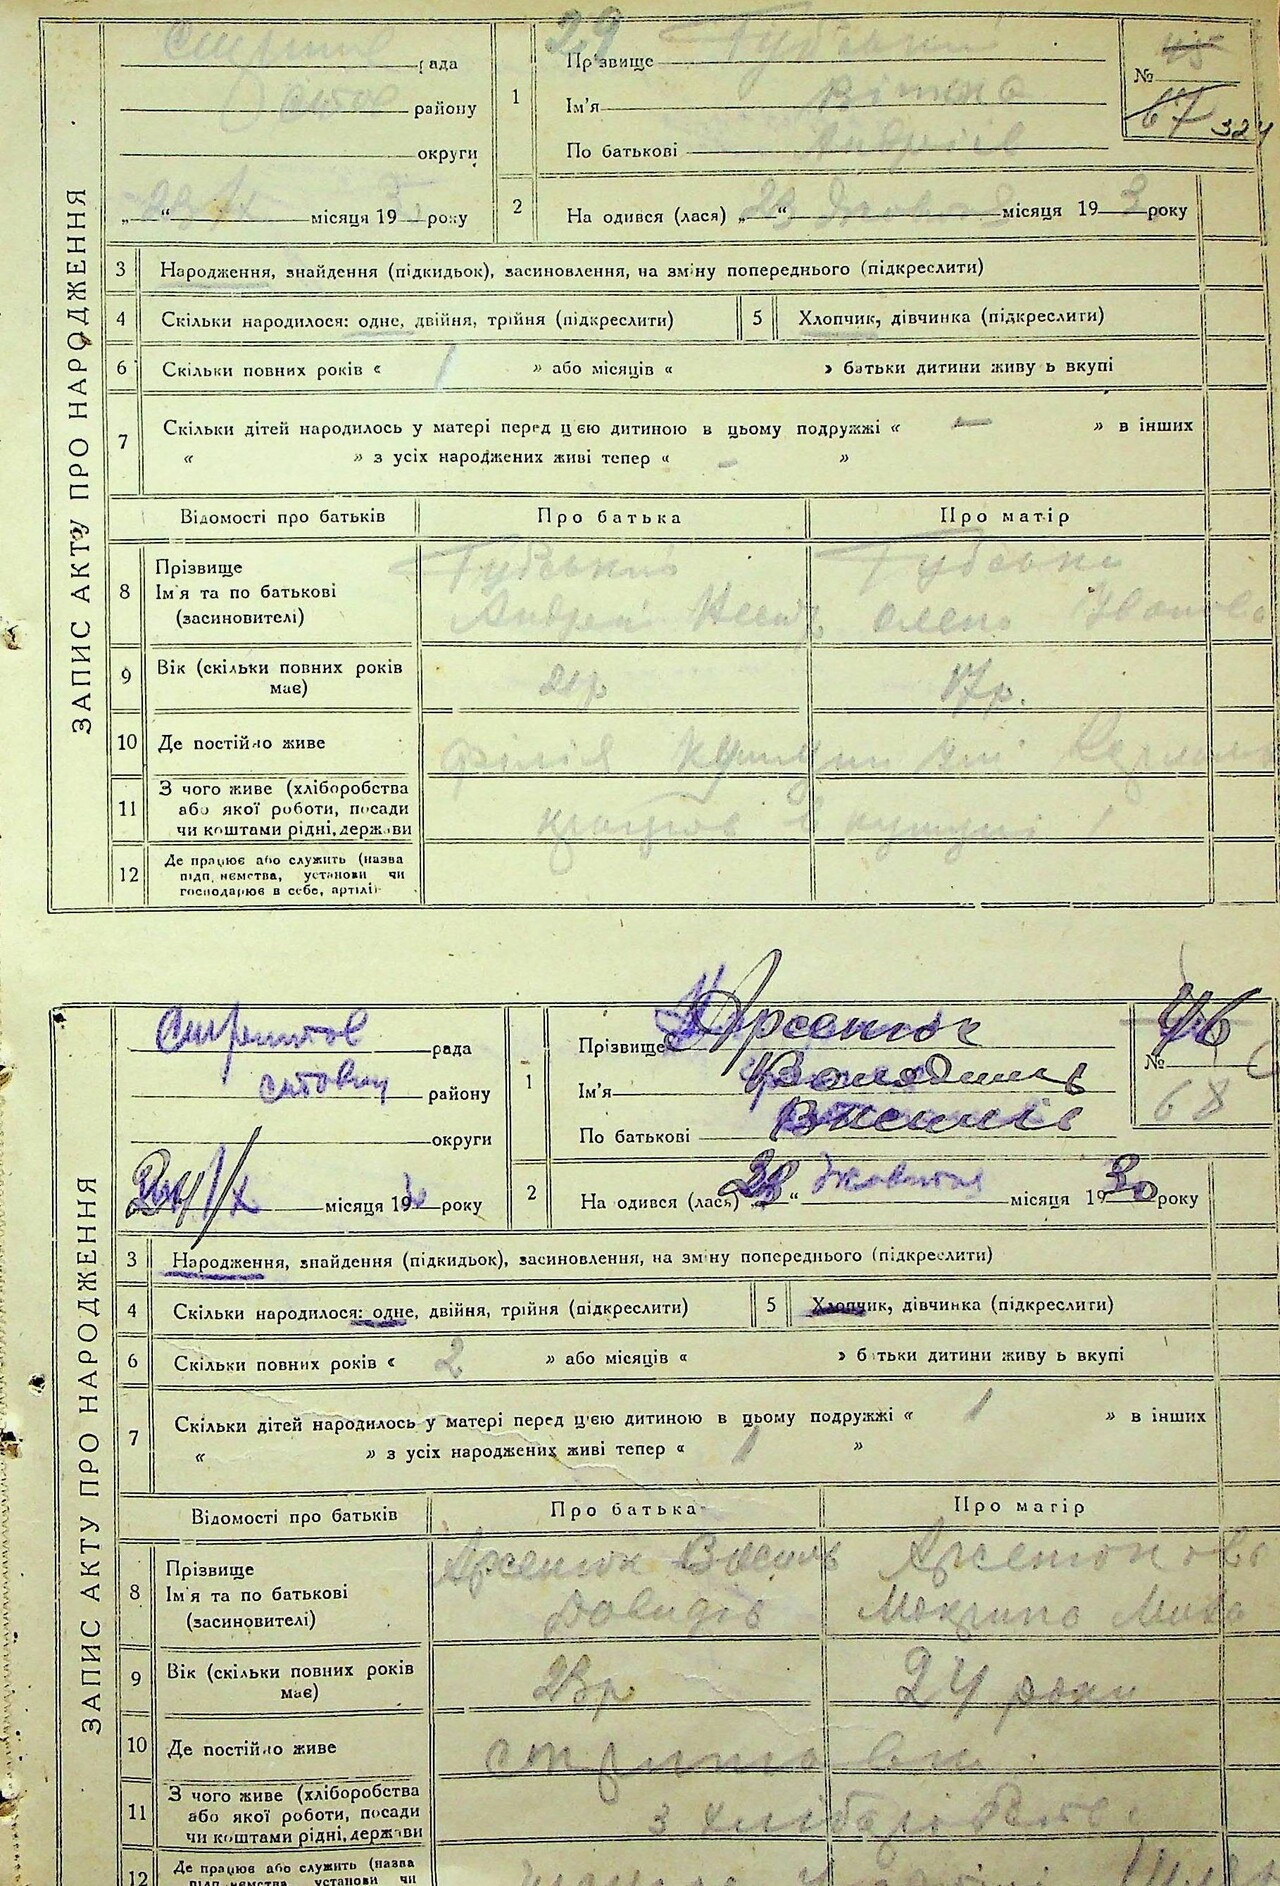 ЗАПИС АКТУ ПРО НАРОДЖЕННЯ
29
рада
району
округи
„ “ місяця 19 3 року
1 Прізвище Губський
Ім'я
По батькові Андріїв
№ 45
67 324
2 На одився (лася) „23“ жовтня місяця 19 3 року
3 Народження, знайдення (підкидьок), засиновлення, на зміну попереднього (підкреслити)
4 Скільки народилося: одне, двійня, трійня (підкреслити)
5 Хлопчик, дівчинка (підкреслити)
6 Скільки повних років « 1 » або місяців « » батьки дитини живу ь вкупі
7 Скільки дітей народилось у матері перед цією дитиною в цьому подружжі « — » в інших
« » з усіх народжених живі тепер « - »
Відомості про батьків Про батька Про матір
8 Прізвище Ім'я та по батькові (засиновителі)
Губський Губська
Андрій Олена Іванова
9 Вік (скільки повних років має) 21р 17р.
10 Де постійно живе
11 З чого живе (хліборобства або якої роботи, посади чи коштами рідні, держави
12 Де працює або служить (назва підп. немства, установи чи господарює в себе, артілі)
ЗАПИС АКТУ ПРО НАРОДЖЕННЯ
рада
району
округи
24/X місяця 19 року
1 Прізвище Арсенюк
Ім'я Володимир
По батькові Василів
№ 46
68
2 На одився (лася) „23“ жовтня місяця 19 30 року
3 Народження, знайдення (підкидьок), засиновлення, на зміну попереднього (підкреслити)
4 Скільки народилося: одне, двійня, трійня (підкреслити)
5 Хлопчик, дівчинка (підкреслити)
6 Скільки повних років « 2 » або місяців « » батьки дитини живу ь вкупі
7 Скільки дітей народилось у матері перед цією дитиною в цьому подружжі « 1 » в інших
« » з усіх народжених живі тепер « 1 »
Відомості про батьків Про батька Про матір
8 Прізвище Ім'я та по батькові (засиновителі)
Арсенюк Василь Арсенюкова
Давидів
9 Вік (скільки повних років має) 23р 24 роки
10 Де постійно живе
11 З чого живе (хліборобства або якої роботи, посади чи коштами рідні, держави
з хліборобства
12 Де працює або служить (назва підп. немства, установи чи